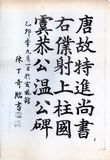 唐故特進尚書
右僕射上柱國
虞恭公溫公碑
乙卯年
陳丁奇臨書